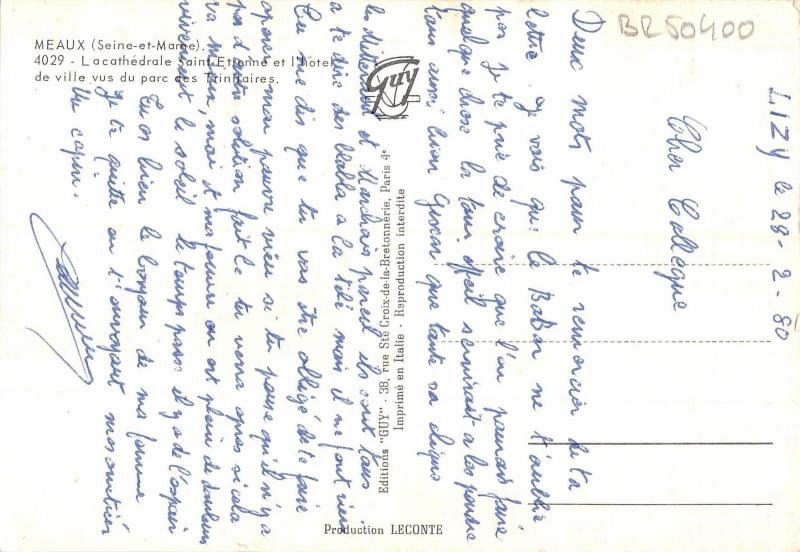 BR50400
MEAUX (Seine-et-Marne).
4029 - La cathédrale Saint Etienne et l'hôtel
de ville vus du parc des Trinitaires.
Guy
Editions "GUY" - 38, rue Ste Croix-de-la-Bretonnerie, Paris 4e
Imprimé en Italie - Reproduction interdite
Production LECONTE
LIZY le 28-2-80
Cher Collegue
Deux mots pour te remercier de ta
lettre je vois que le Babar ne t'oublie
pas je te prie de croire que l'on pourrait faire
quelque chose la tour Effeil servirait a les pendre
tous aussi bien que toute sa clique
les Mitterand et Marchais pareil ils sont tous
a te dire des blabla a la télé mais il ne font rien
tu me dis que tu vas être obligé de te faire
opérer mon pauvre vieu si tu pense qu'il n'y a
pas d'autre solution fait le tu verra apres si cela
va mieux, moi et ma femme on est plein de douleurs
vivement le soleil le temps passe il y a de l'espoir
Tu as bien le bonjour de ma femme
Je te quitte en t'envoyant mes amitiés
Un copain.